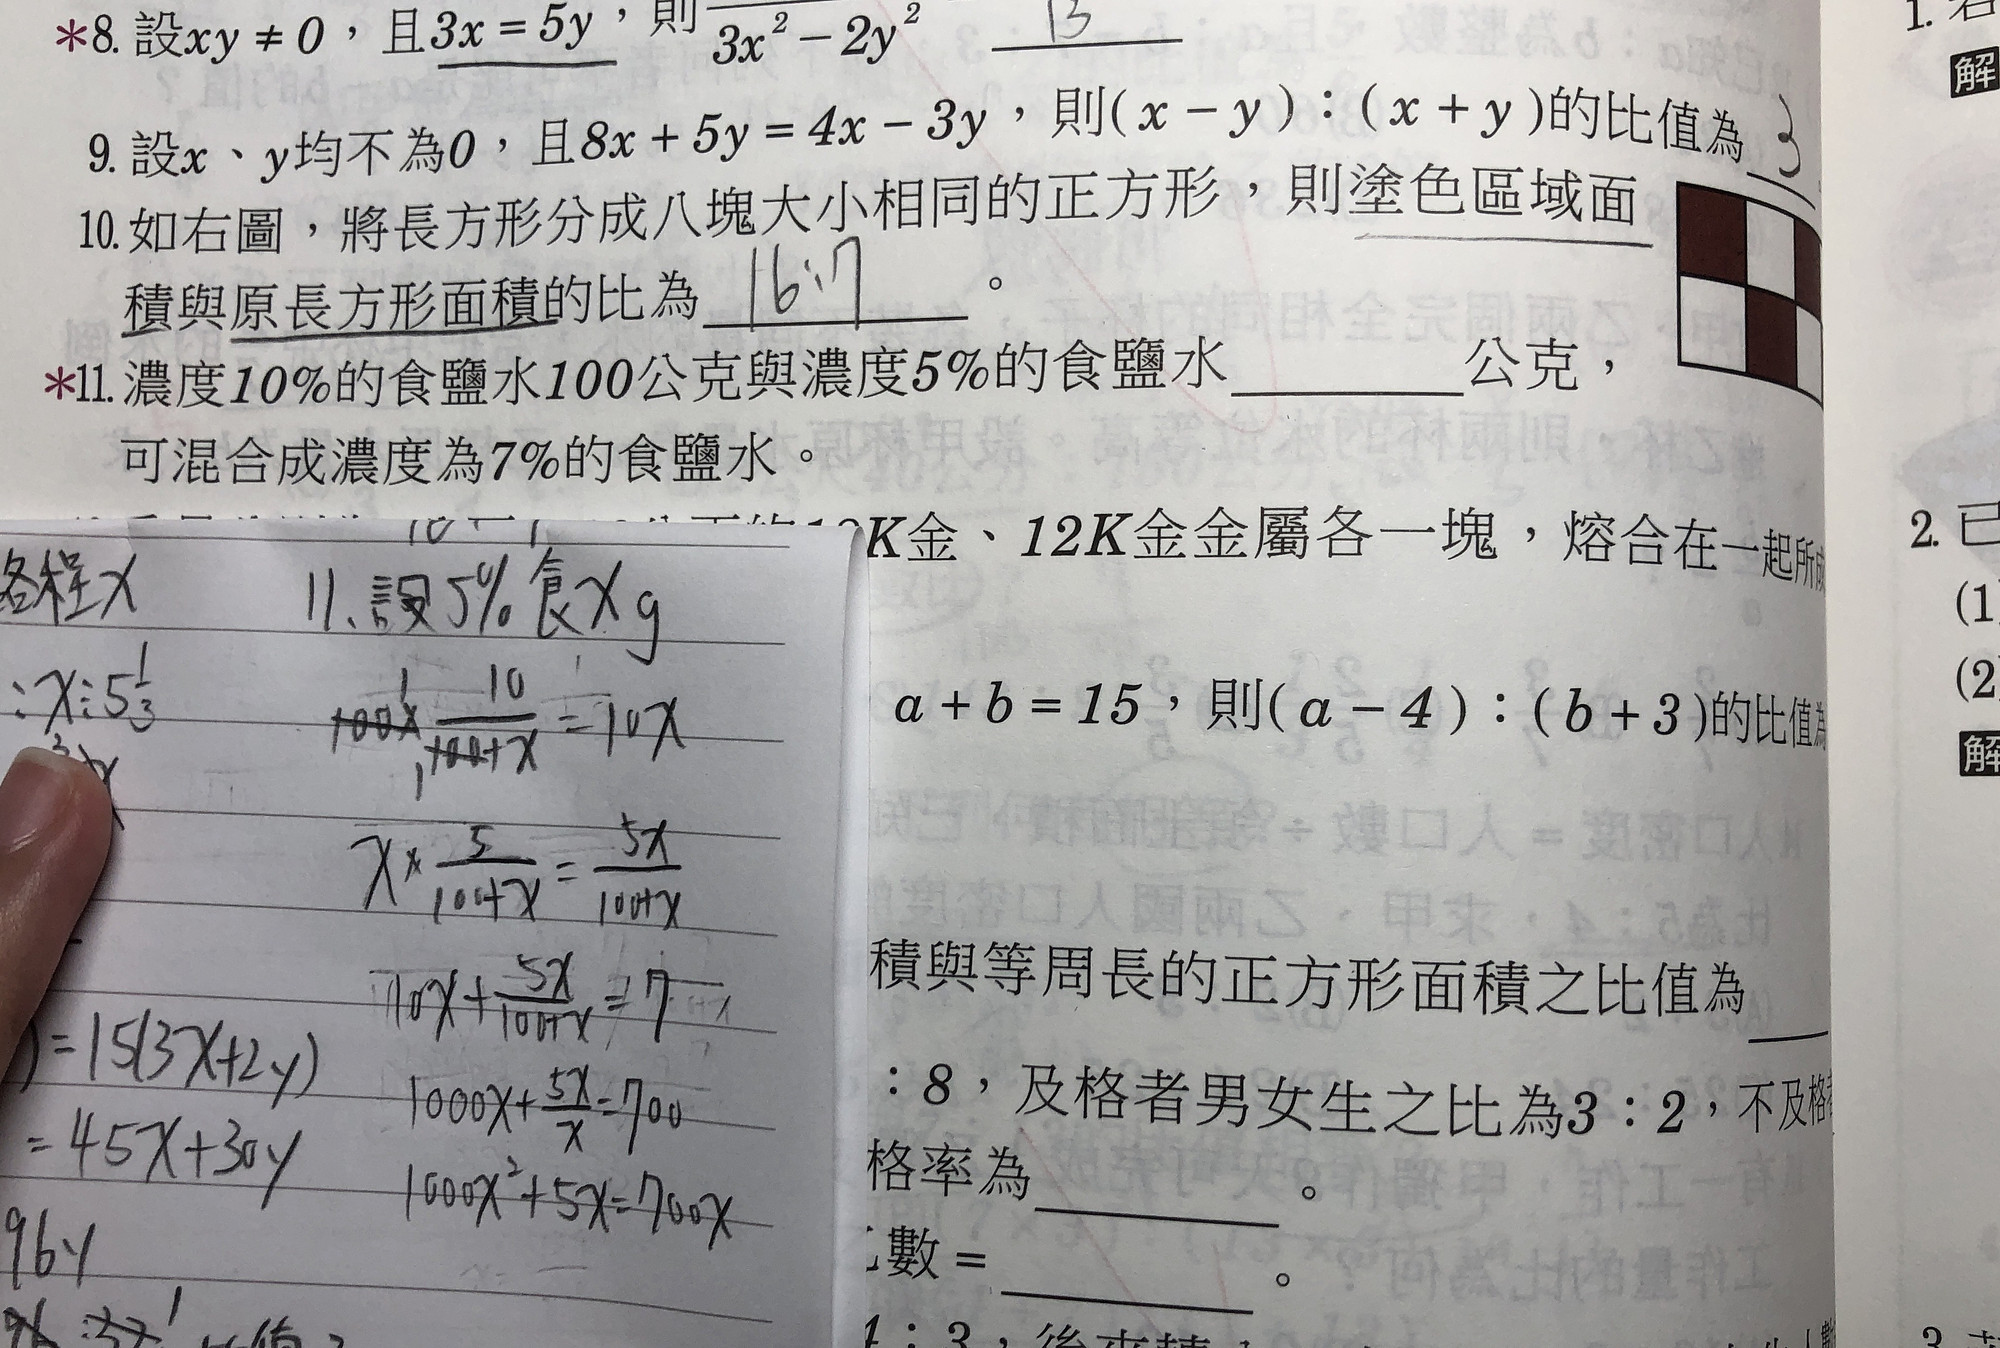 *8. 設xy ≠ 0，且3x = 5y，則 3x² − 2y² 13
9. 設x、y均不為0，且8x + 5y = 4x − 3y，則( x − y )：( x + y )的比值為 3
10. 如右圖，將長方形分成八塊大小相同的正方形，則塗色區域面
積與原長方形面積的比為 16:7 。
*11. 濃度10%的食鹽水100公克與濃度5%的食鹽水______公克，
可混合成濃度為7%的食鹽水。
K金、12K金金屬各一塊，熔合在一起所
a + b = 15，則( a − 4 )：( b + 3 )的比值為
積與等周長的正方形面積之比值為
：8，及格者男女生之比為3：2，不及格
格率為______。
數 = ______。
：3，後來轉
程x
:x:5 1/3
)=15(3x+2y)
=45x+30y
96y
11. 設5%食x g
100x 10/100+x = 10x
x × 5/100+x = 5x/100+x
10x + 5x/100+x = 7
1000x + 5x/x = 700
1000x² + 5x = 700x
1.
解
2. 已
(1)
(2)
解
3.